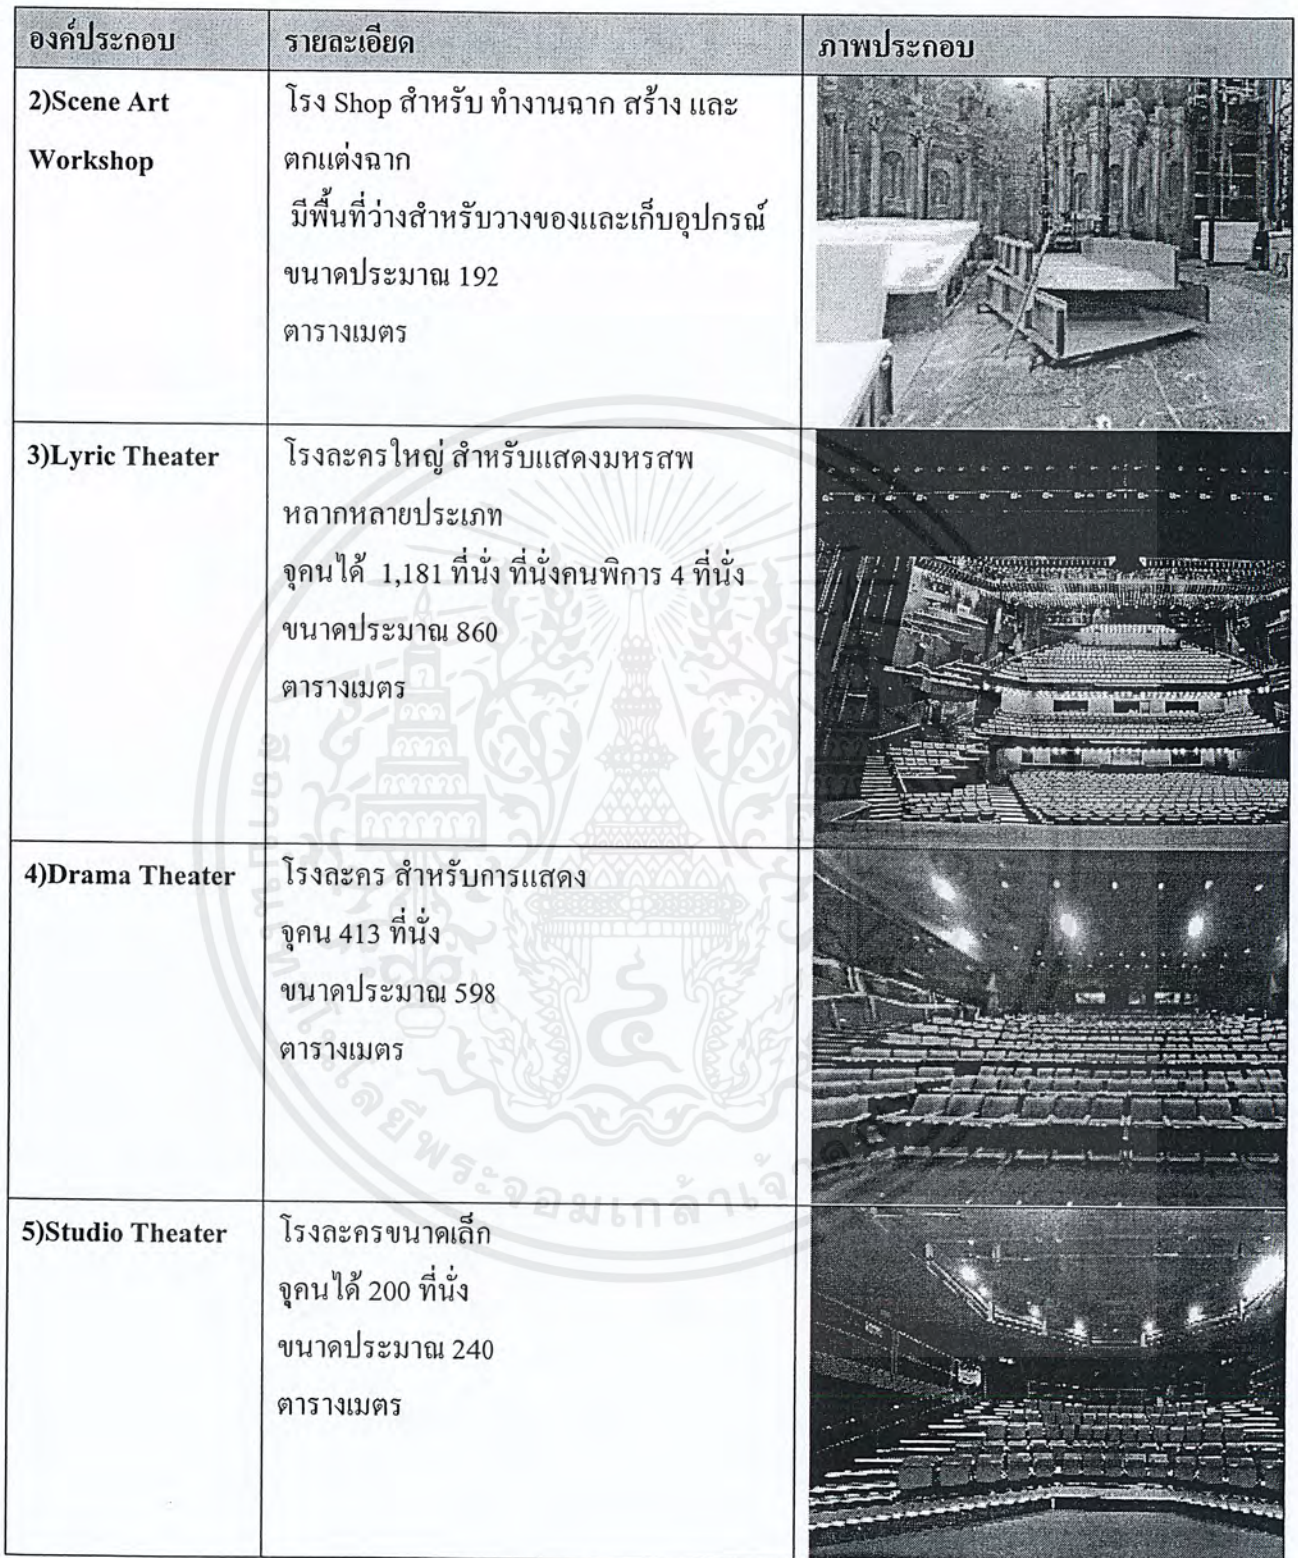 องค์ประกอบ
รายละเอียด
ภาพประกอบ
2)Scene Art
Workshop
โรง Shop สำหรับ ทำงานฉาก สร้าง และ
ตกแต่งฉาก
มีพื้นที่ว่างสำหรับวางของและเก็บอุปกรณ์
ขนาดประมาณ 192
ตารางเมตร
3)Lyric Theater
โรงละครใหญ่ สำหรับแสดงมหรสพ
หลากหลายประเภท
จุคนได้ 1,181 ที่นั่ง ที่นั่งคนพิการ 4 ที่นั่ง
ขนาดประมาณ 860
ตารางเมตร
4)Drama Theater
โรงละคร สำหรับการแสดง
จุคน 413 ที่นั่ง
ขนาดประมาณ 598
ตารางเมตร
5)Studio Theater
โรงละครขนาดเล็ก
จุคนได้ 200 ที่นั่ง
ขนาดประมาณ 240
ตารางเมตร